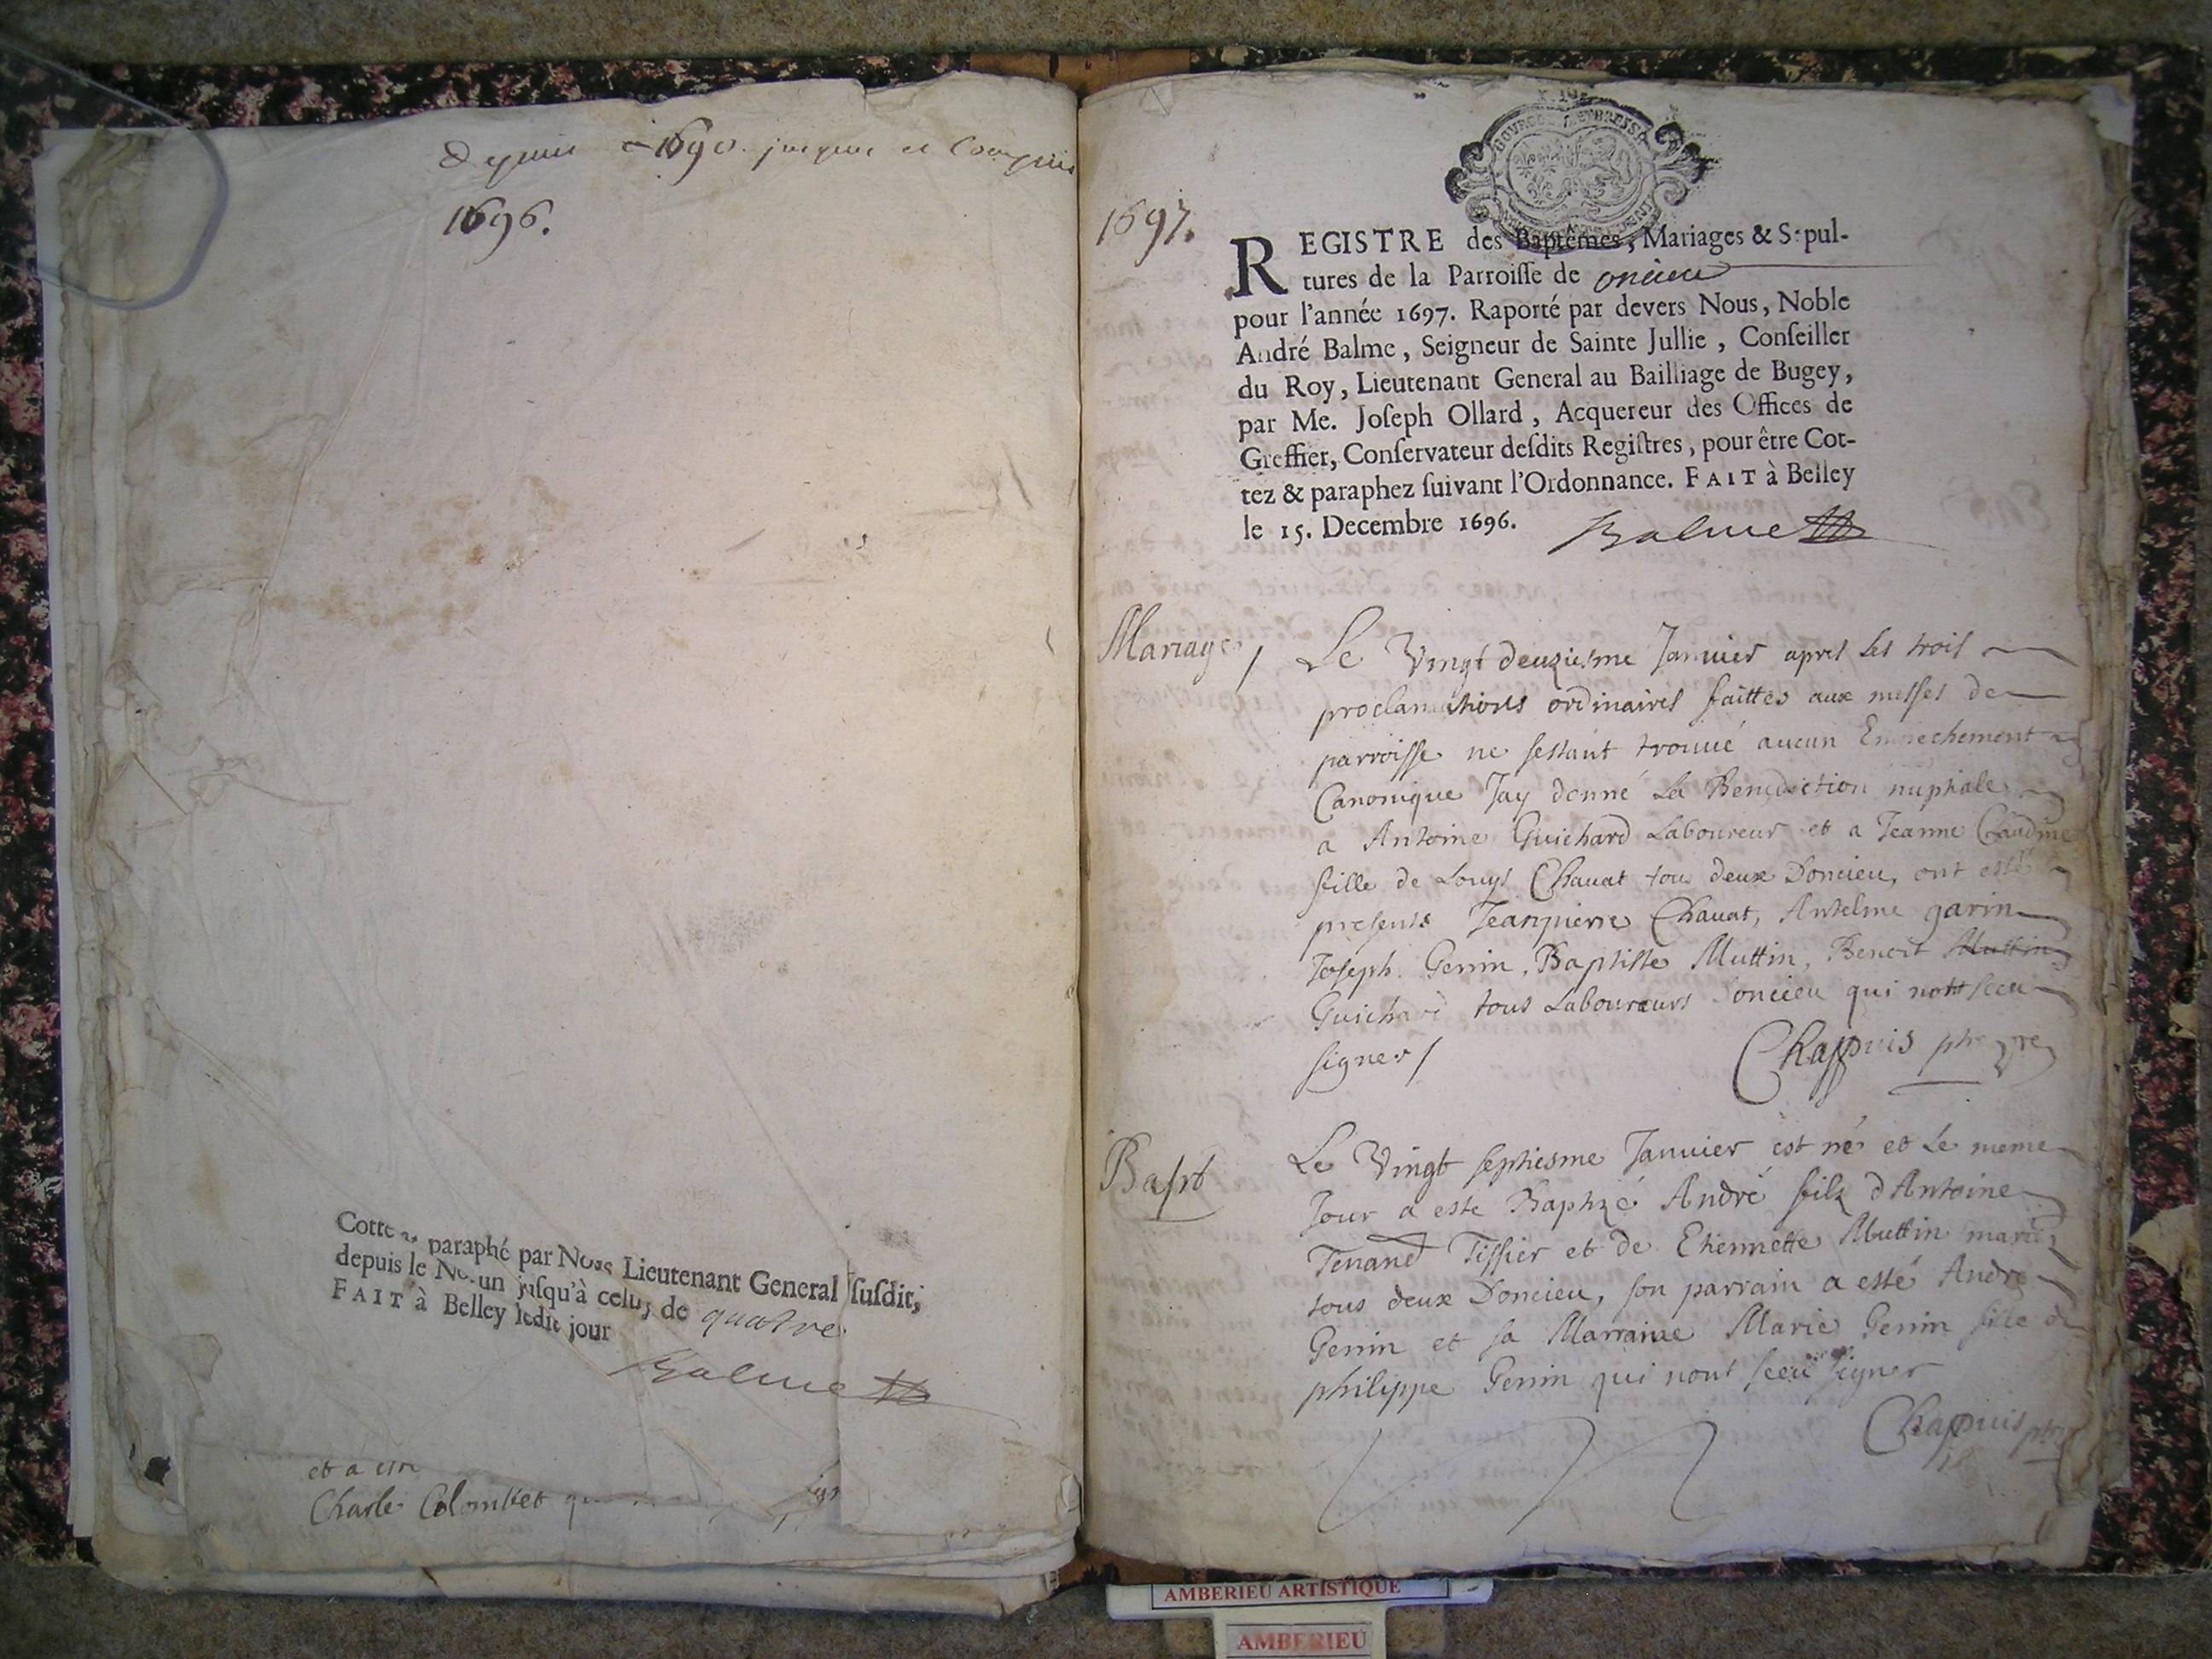 Depuis 1690. jusques et Compris
1696.
Cotté & paraphé par Nous Lieutenant General susdit,
depuis le No. un jusqu'à celuy de quatre
FAIT à Belley ledit jour
Balme
et a
Charle Colombet
BOURGOGNE BRESSE
1697.
REGISTRE des Baptêmes, Mariages & Sepul-
tures de la Parroisse de oncieu
pour l'année 1697. Raporté par devers Nous, Noble
André Balme, Seigneur de Sainte Jullie, Conseiller
du Roy, Lieutenant General au Bailliage de Bugey,
par Me. Joseph Ollard, Acquereur des Offices de
Greffier, Conservateur desdits Registres, pour être Cot-
tez & paraphez suivant l'Ordonnance. FAIT à Belley
le 15. Decembre 1696. Balme
Mariage / Le Vingt deuziesme Janvier apres les trois
proclamations ordinaires faittes aux messes de
parroisse ne sestant trouué aucun Empechement
Canonique Jay donné La Benediction nuptiale
a Antoine Guichard Laboureur et a Jeanne Claudine
fille de Louys Chauat tous deux Doncieu, ont esté
presents Jeanpierre Chauat, Antelme garin
Joseph Genin, Baptiste Muttin, Benoit Muttin
Guichard tous Laboureurs Doncieu qui nont sceu
signer / Chappuis
Bapt Le Vingt septiesme Januier est né et Le meme
Jour a esté Baptizé André filz dAntoine
Tenand Tissier et de Etiennette Muttin mariez
tous deux Doncieu, son parrain a esté André
Genin et sa Marraine Marie Genin fille de
philippe Genin qui nont sceu signer
Chappuis
AMBERIEU ARTISTIQUE
AMBERIEU